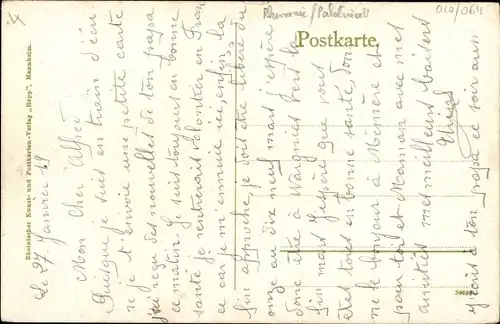 Rhénanie/Palatinat
010/064
Postkarte.
Rheinischer Kunst- und Postkarten-Verlag „Hepp", Mannheim.
Le 27 Janvier 19
Mon Cher Alfred
Puisque je suis en train d'écri
re je t'envoie une petite carte
j'ai reçu des nouvelles de ton papa
ce matin. Je suis toujours en bonne
santé je rentrerait bientôt en France
car je m'ennuie ici, enfin la
fin approche je doit être libéré du
onze au dix neuf mars j'espère
donc être à Wavignies vers la
fin mars. J'espère que vous
êtes tous en bonne santé, don
ne le bonjour à Mémère et
pour toi et Maman avec mes
amitiés mes meilleurs baisers
j'écris à ton papa ce soir aussi